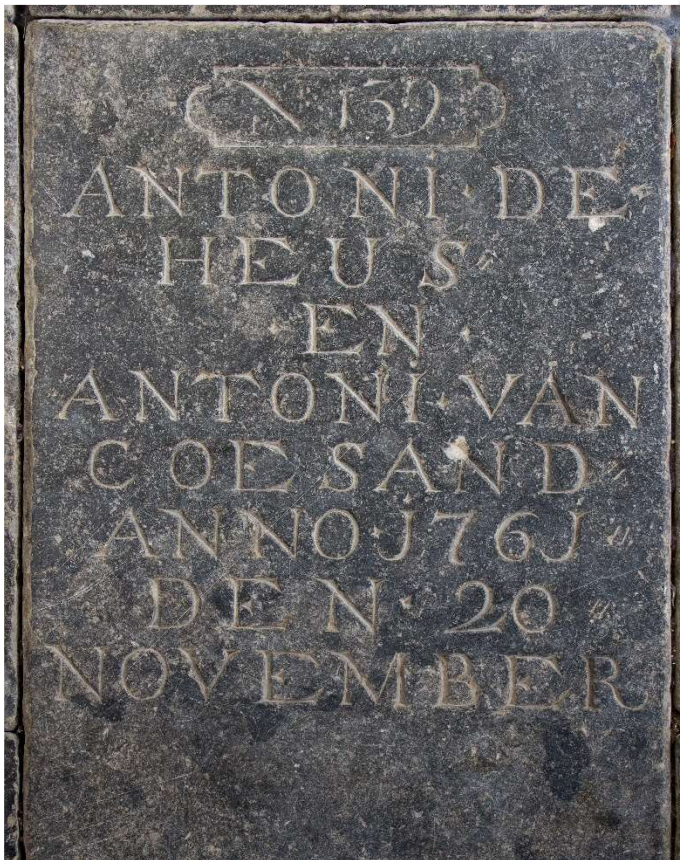 N 139
ANTONI · DE
HEUS
· EN ·
ANTONI · VAN
COESAND
ANNO j76J
DEN · 20
NOVEMBER